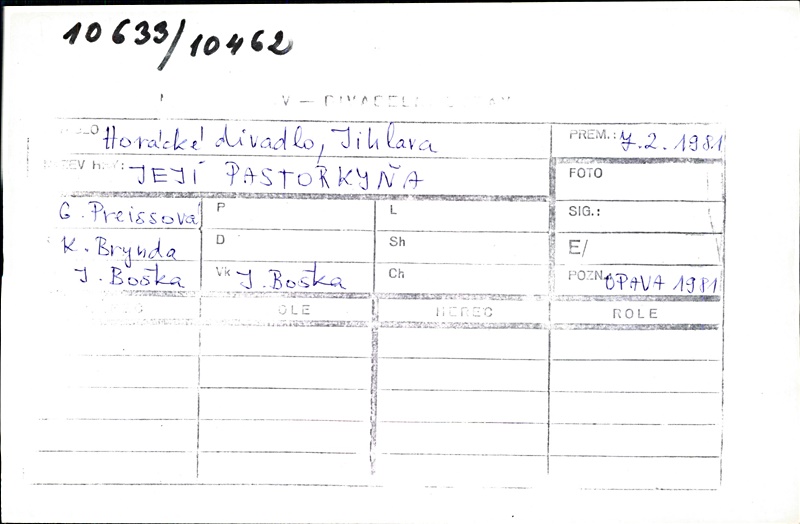 10 633/10462
Horácké divadlo, Jihlava PREM.: 7.2.1981
JEJÍ PASTORKYŇA FOTO
G. Preissová P L SIG.:
K. Brynda D Sh E/
J. Boška Vk J. Boška Ch POZN. OPAVA 1981
HEREC ROLE